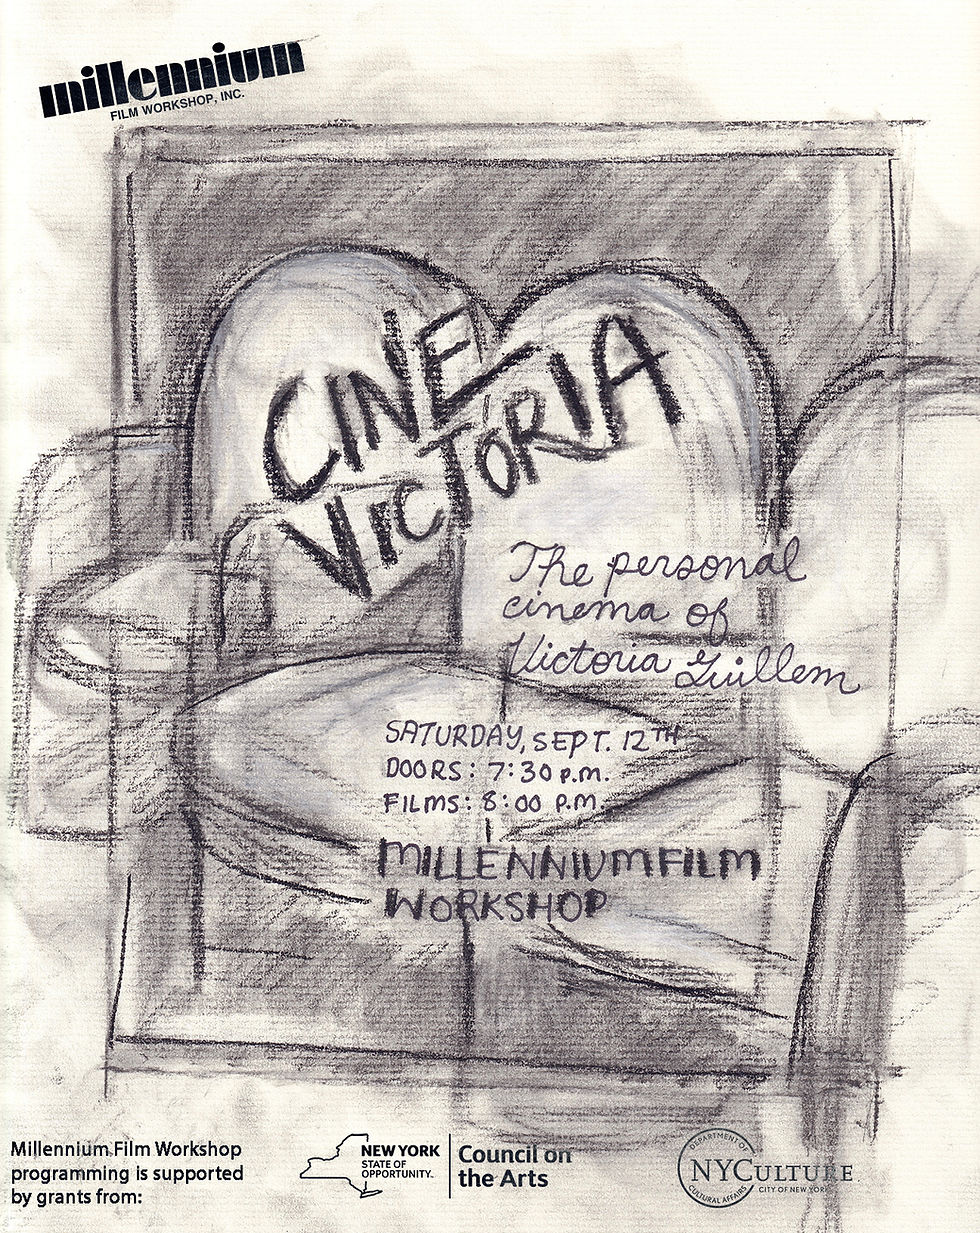 millennium
FILM WORKSHOP, INC.
CINE
VICTORIA
The personal
cinema of
Victoria Guillem
SATURDAY, SEPT. 12TH
DOORS: 7:30 P.M.
FILMS: 8:00 P.M.
MILLENNIUM FILM
WORKSHOP
Millennium Film Workshop
programming is supported
by grants from:
NEW YORK
STATE OF
OPPORTUNITY.
Council on
the Arts
DEPARTMENT OF
NYCULTURE
CITY OF NEW YORK
CULTURAL AFFAIRS